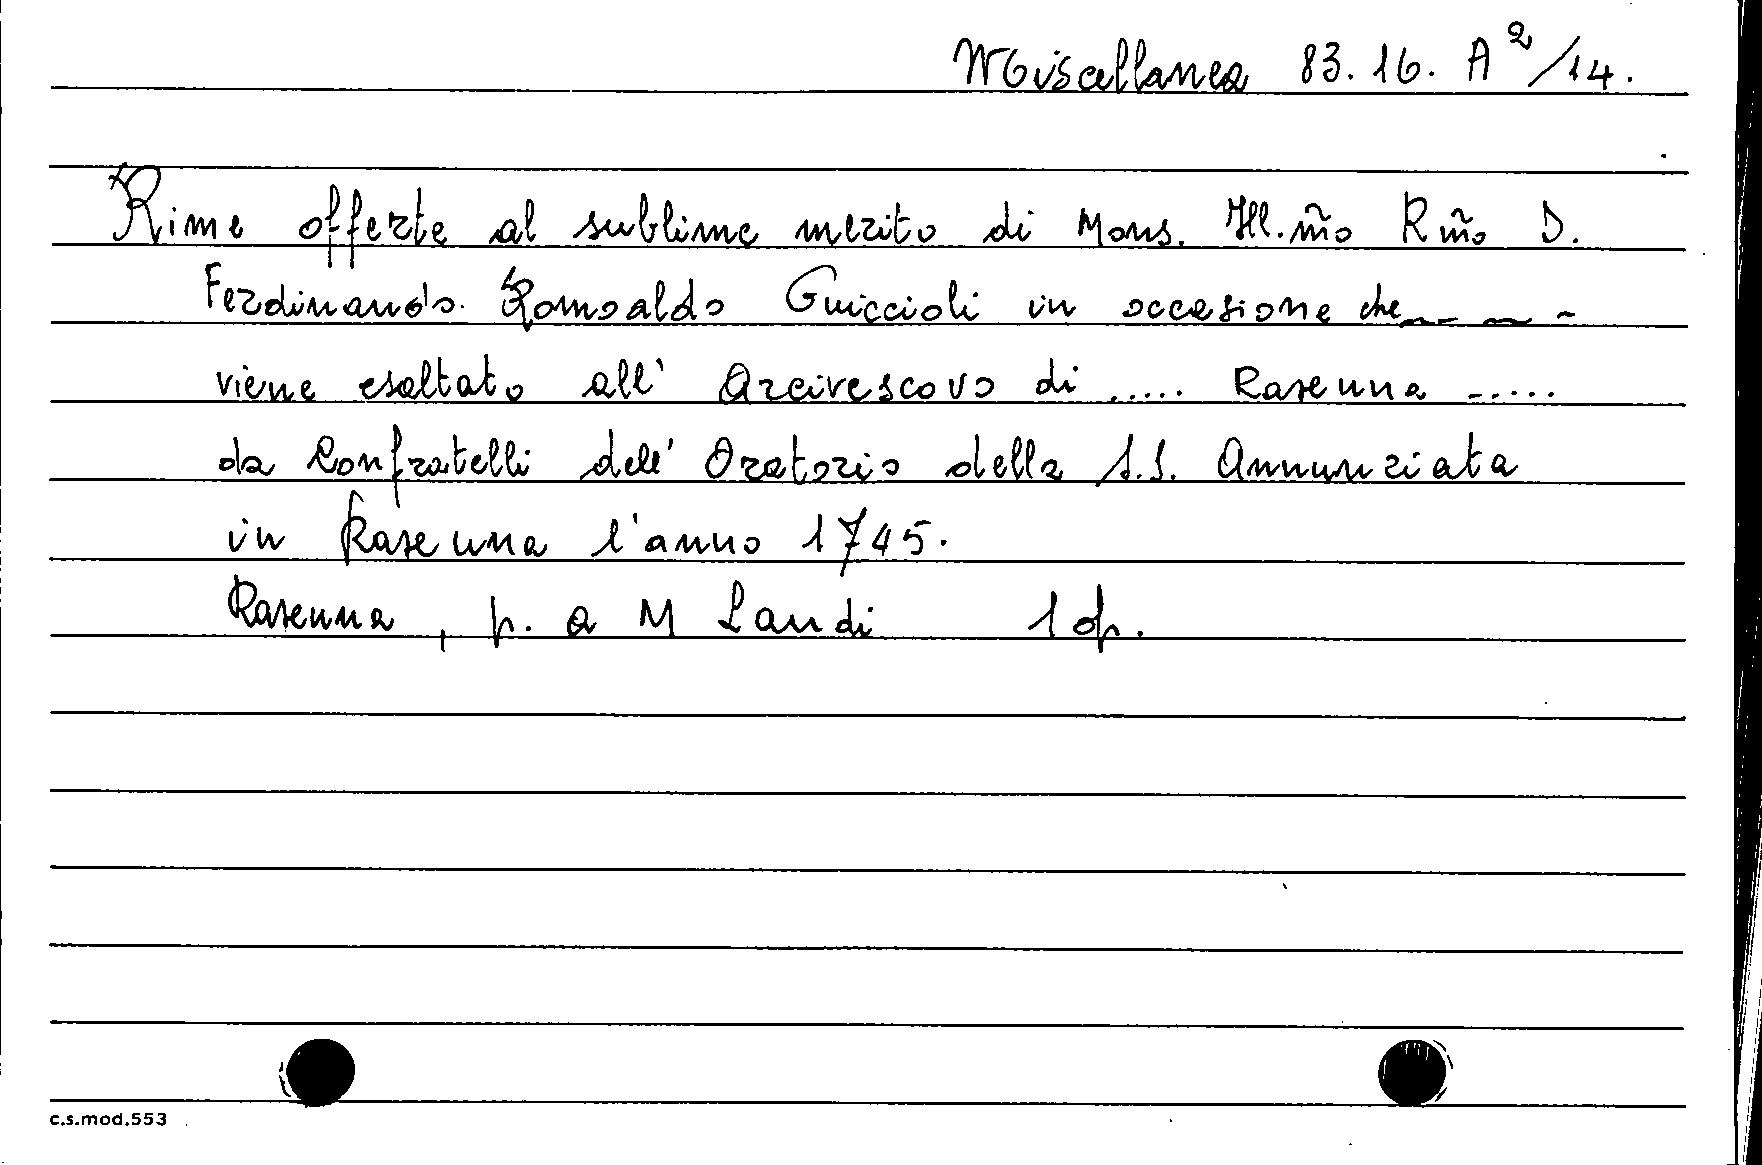 Miscellanea 83.16. A²/14.
Rime offerte al sublime merito di Mons. Ill.m̃o Rm̃o D.
Ferdinando. Romoaldo Guiccioli in occasione che _ _ _ _
viene esaltato all' Arcivescovo di ..... Ravenna .....
da Confratelli dell' Oratorio della S.S. Annunziata
in Ravenna l'anno 1745.
Ravenna, p. a M Landi 1 op.
c.s.mod.553